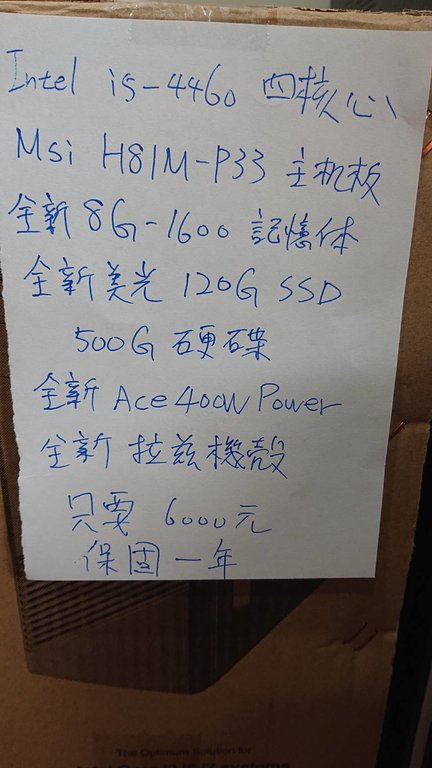 Intel i5-4460 四核心
Msi H81M-P33 主机板
全新 8G-1600 記憶体
全新美光 120G SSD
500G 硬碟
全新 Ace 400W Power
全新 拉兹機殼
只要 6000元
保固一年
The Optimum Solution for